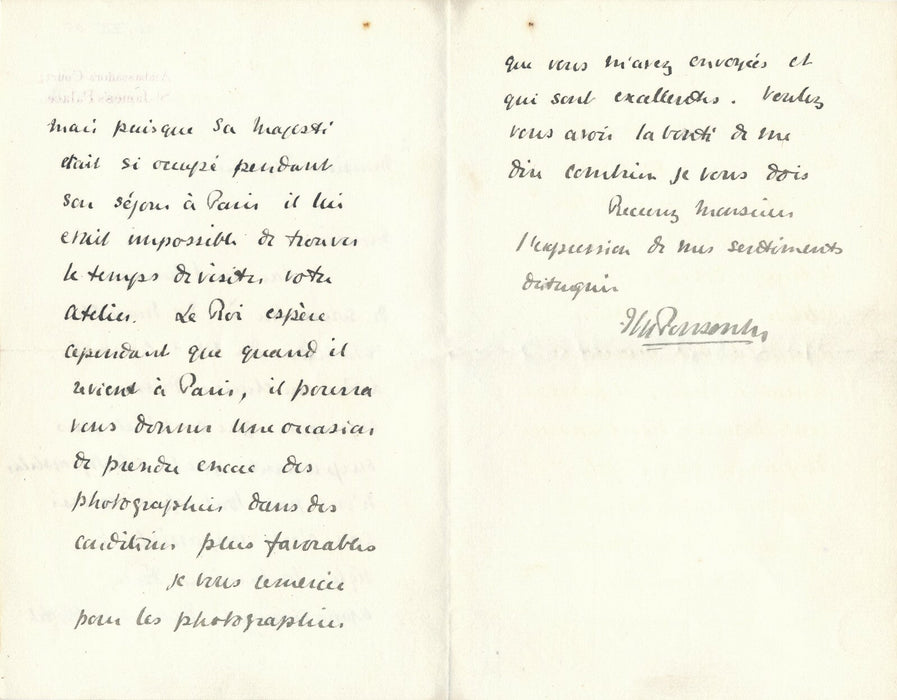 Ambassadors Court,
St James's Palace.
mais puisque Sa Majesté
etait si occupé pendant
son séjour à Paris il lui
etait impossible de trouver
le temps de visiter votre
atelier. Le Roi espère
cependant que quand il
revient à Paris, il pourra
vous donner une occasion
de prendre encore des
photographies dans des
conditions plus favorables
je vous remercie
pour les photographies
que vous m'avez envoyées et
qui sont excellentes. Veuillez
vous avoir la bonté de me
dire combien je vous dois
Recevez Monsieur
l'expression de mes sentiments
distingués
Ponsonby